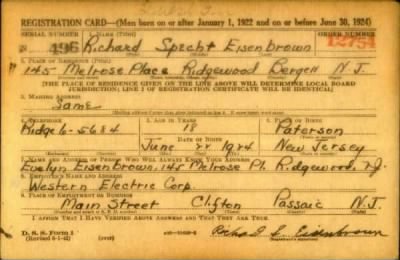 REGISTRATION CARD—(Men born on or after January 1, 1922 and on or before June 30, 1924)
SERIAL NUMBER 1. NAME (Print) ORDER NUMBER
195 Richard Specht Eisenbrown 12754
2. PLACE OF RESIDENCE (Print)
145 Melrose Place Ridgewood Bergen N.J.
[THE PLACE OF RESIDENCE GIVEN ON THE LINE ABOVE WILL DETERMINE LOCAL BOARD
JURISDICTION; LINE 2 OF REGISTRATION CERTIFICATE WILL BE IDENTICAL]
3. MAILING ADDRESS
Same
4. TELEPHONE 5. AGE IN YEARS 6. PLACE OF BIRTH
Ridge 6-5684 18 Paterson
DATE OF BIRTH
June 1924 New Jersey
7. NAME AND ADDRESS OF PERSON WHO WILL ALWAYS KNOW YOUR ADDRESS
Evelyn Eisenbrown, 145 Melrose Pl. Ridgewood, N.J.
8. EMPLOYER'S NAME AND ADDRESS
Western Electric Corp.
9. PLACE OF EMPLOYMENT OR BUSINESS
Main Street Clifton Passaic N.J.
I AFFIRM THAT I HAVE VERIFIED ABOVE ANSWERS AND THAT THEY ARE TRUE.
D. S. S. Form 1
(Revised 6-1-42)
Richard S. Eisenbrown